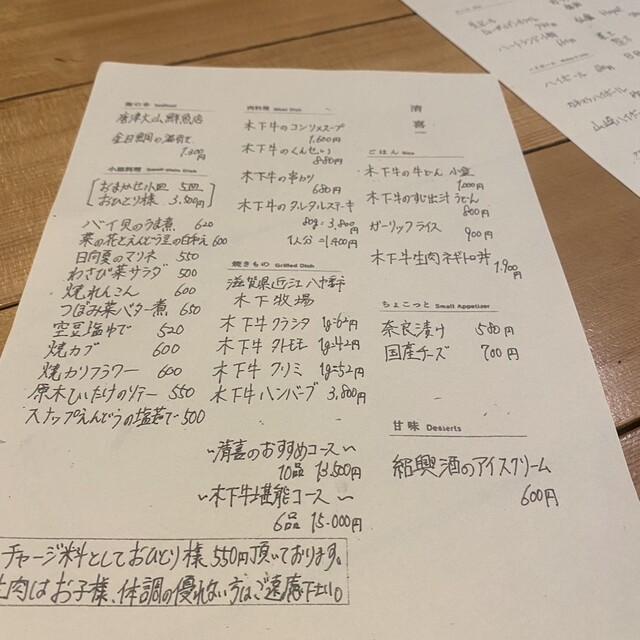 魚の幸 Seafood
唐津大山鮮魚店
金目鯛の酒蒸し
1,200円
小皿料理 Small Main Dish
おまかせ小皿 5皿
おひとり様 3,500円
バイ貝のうま煮 620
菜の花とえんどう豆の白和え 600
日向夏のマリネ 550
わさび菜サラダ 500
焼れんこん 600
つぼみ菜バター煮 650
空豆塩ゆで 520
焼カブ 600
焼カリフラワー 600
原木しいたけのソテー 550
スナップえんどうの塩茹で 500
肉料理 Meat Dish
木下牛のコンソメスープ
1,600円
木下牛のくんせい
880円
木下牛の串カツ
680円
木下牛のタルタルステーキ
80g=3,800円
1人分=1,400円
焼きもの Grilled Dish
滋賀県近江八幡
木下牧場
木下牛クラシタ 1g=62円
木下牛外モモ 1g=42円
木下牛クリミ 1g=52円
木下牛ハンバーグ 3,800円
清喜
ごはん Rice
木下牛の牛どん 小盛
1,000円
木下牛のすじ出汁うどん
800円
ガーリックライス
900円
木下牛生肉ネギトロ丼
1,900円
ちょこっと Small Appetizer
奈良漬け 580円
国産チーズ 700円
甘味 Desserts
紹興酒のアイスクリーム
600円
〜清喜のおすすめコース〜
10品 13,500円
〜木下牛堪能コース〜
6品 15,000円
チャージ料としておひとり様550円頂いております。
生肉はお子様、体調の優れない方はご遠慮下さい。